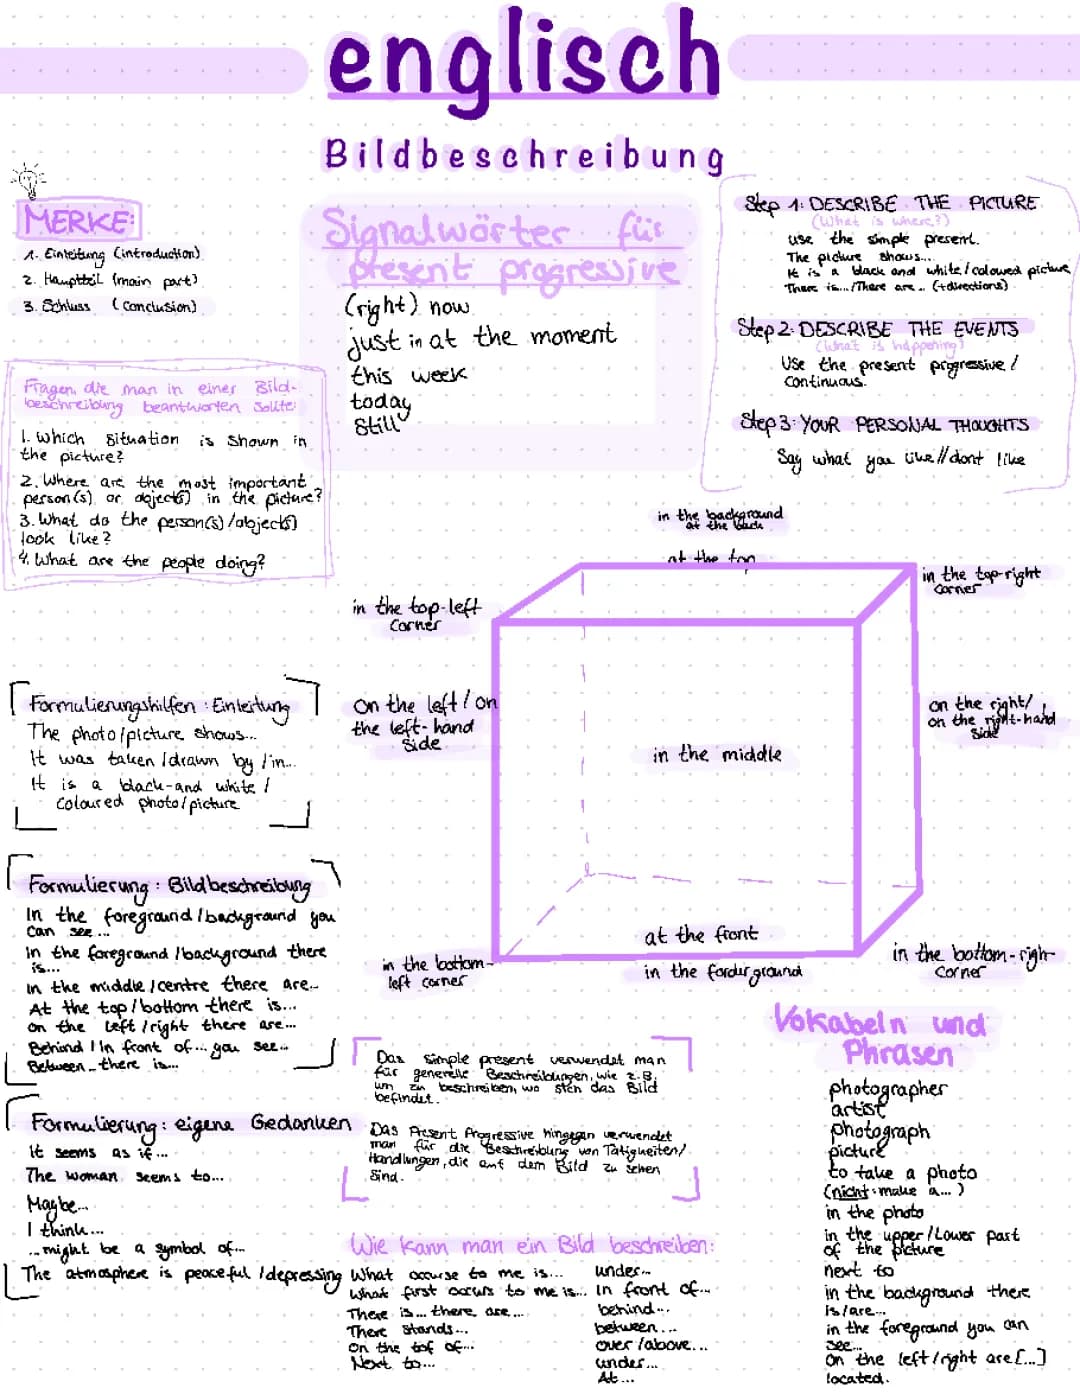 englisch
Bildbeschreibung
MERKE:
1. Einleitung (introduction)
2. Hauptteil (main part)
3. Schluss (conclusion)
Fragen, die man in einer Bild-
beschreibung beantworten sollte:
1. Which situation is shown in
the picture?
2. Where are the most important
person(s) or object(s) in the picture?
3. What do the person(s)/object(s)
look like?
4. What are the people doing?
Signalwörter für
present progressive
(right) now
just in at the moment
this week
today
still
Step 1: DESCRIBE THE PICTURE
(What is where?)
use the simple present.
The picture shows...
It is a black and white/coloured picture
There is.../There are... (+directions)
Step 2: DESCRIBE THE EVENTS
(What is happening?)
Use the present progressive/
continuous.
Step 3: YOUR PERSONAL THOUGHTS
Say what you like//dont like
in the background
at the back
at the top
in the top-left
corner
in the top-right
corner
on the left/on
the left-hand
side
in the middle
on the right/
on the right-hand
side
at the front
in the bottom-
left corner
in the forderground
in the bottom-righ
corner
Formulierungshilfen: Einleitung
The photo/picture shows...
It was taken/drawn by/in...
It is a black-and white/
coloured photo/picture
Formulierung: Bildbeschreibung
In the foreground/background you
can see...
in the foreground/background there
is...
in the middle/centre there are...
At the top/bottom there is...
on the left/right there are...
Behind/In front of... you see...
Between... there is...
Formulierung: eigene Gedanken
it seems as if...
The woman seems to...
Maybe...
I think...
...might be a symbol of...
The atmosphere is peaceful/depressing
Das simple present verwendet man
für generelle Beschreibungen, wie z.B.
um zu beschreiben, wo sich das Bild
befindet.
Das Present Progressive hingegen verwendet
man für die Beschreibung von Tätigkeiten/
Handlungen, die auf dem Bild zu sehen
sind.
Wie kann man ein Bild beschreiben:
What occurse to me is...
What first occurs to me is...
There is... there are...
There stands...
On the tof of...
Next to...
under...
In front of...
behind...
between...
over/above...
under...
At...
Vokabeln und
Phrasen
photographer
artist
photograph
picture
to take a photo
(nicht: make a...)
in the photo
in the upper/Lower part
of the picture
next to
in the background there
is/are...
in the foreground you can
see...
On the left/right are[...]
located.